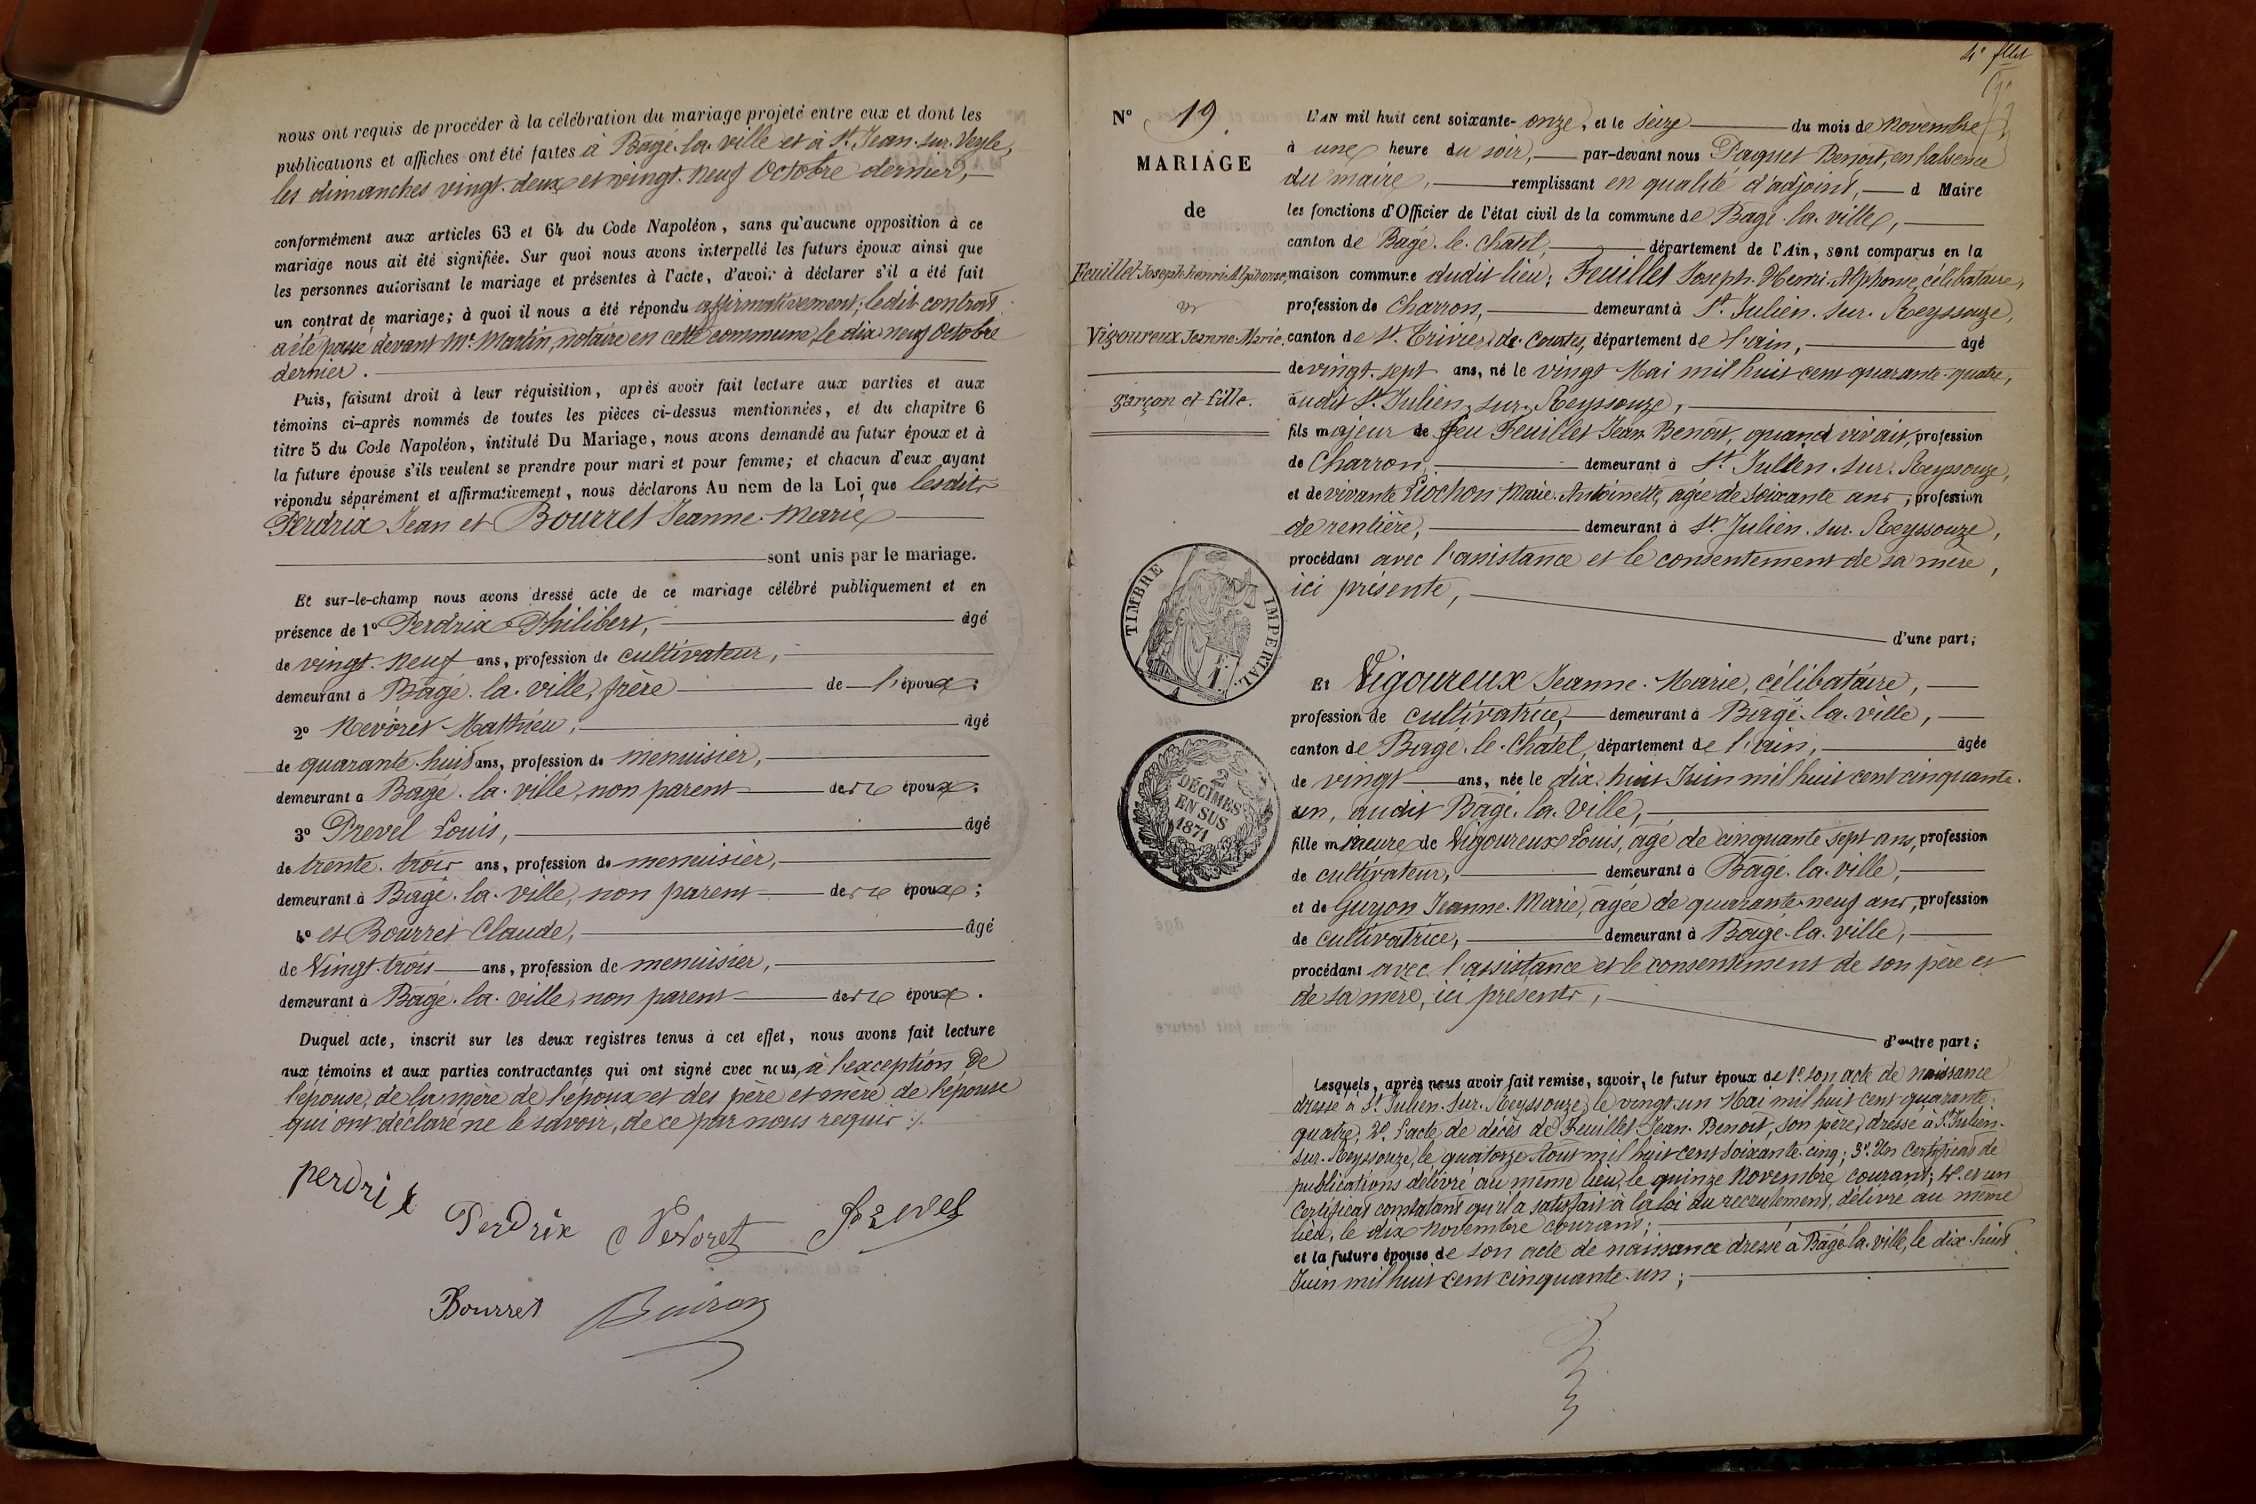 nous ont requis de procéder à la célébration du mariage projeté entre eux et dont les
publications et affiches ont été faites à Bagé-la-ville et à St Jean-sur-Veyle,
les dimanches vingt-deux et vingt-neuf Octobre dernier,
conformément aux articles 63 et 64 du Code Napoléon, sans qu'aucune opposition à ce
mariage nous ait été signifiée. Sur quoi nous avons interpellé les futurs époux ainsi que
les personnes autorisant le mariage et présentes à l'acte, d'avoir à déclarer s'il a été fait
un contrat de mariage; à quoi il nous a été répondu affirmativement; ledit contrat
a été passé devant Me Martin, notaire en cette commune, le dix neuf Octobre
dernier.
Puis, faisant droit à leur réquisition, après avoir fait lecture aux parties et aux
témoins ci-après nommés de toutes les pièces ci-dessus mentionnées, et du chapitre 6
titre 5 du Code Napoléon, intitulé Du Mariage, nous avons demandé au futur époux et à
la future épouse s'ils veulent se prendre pour mari et pour femme; et chacun d'eux ayant
répondu séparément et affirmativement, nous déclarons Au nom de la Loi que lesdits
Perdrix Jean et Bourret Jeanne-Marie
sont unis par le mariage.
Et sur-le-champ nous avons dressé acte de ce mariage célébré publiquement et en
présence de 1º Perdrix Philibert, âgé
de vingt-neuf ans, profession de cultivateur,
demeurant à Bagé-la-ville, frère de l'époux;
2º Nevoret Mathieu, âgé
de quarante-huit ans, profession de menuisier,
demeurant à Bagé-la-ville, non parent des époux;
3º Prevel Louis, âgé
de trente-trois ans, profession de menuisier,
demeurant à Bagé-la-ville, non parent des époux;
4º et Bourret Claude, âgé
de Vingt-trois ans, profession de menuisier,
demeurant à Bagé-la-ville, non parent des époux.
Duquel acte, inscrit sur les deux registres tenus à cet effet, nous avons fait lecture
aux témoins et aux parties contractantes qui ont signé avec nous, à l'exception de
l'épouse, de la mère de l'époux et des père et mère de l'épouse
qui ont déclaré ne le savoir, de ce par nous requis ./.
perdrix
Perdrix Nevoret Prevel
Bourret
4e fllet
Nº 19.
MARIAGE
de
Feuillet Joseph henri Alphonse,
et
Vigoureux Jeanne-Marie.
garçon et fille.
TIMBRE IMPERIAL
1
2
DÉCIMES
EN SUS
1871
L'AN mil huit cent soixante-onze, et le seize du mois de novembre
à une heure du soir, par-devant nous Paquet Benoit, en l'absence
du maire, remplissant en qualité d'adjoint, d Maire
les fonctions d'Officier de l'état civil de la commune de Bagé-la-ville,
canton de Bagé-le-Chatel, département de l'Ain, sont comparus en la
maison commune dudit lieu; Feuillet Joseph-Henri-Alphonse, célibataire,
profession de Charron, demeurant à St Julien-sur-Reyssouze,
canton de St Trivier de Courtes, département de l'ain, âgé
de vingt-sept ans, né le vingt Mai mil huit cent quarante-quatre,
audit St Julien-sur-Reyssouze,
fils majeur de feu Feuillet Jean Benoit, quand vivait, profession
de Charron, demeurant à St Julien-sur-Reyssouze,
et de vivante Piochon Marie-Antoinette, agée de soixante ans, profession
de rentière, demeurant à St Julien-sur-Reyssouze,
procédant avec l'assistance et le consentement de sa mère,
ici présente,
d'une part;
Et Vigoureux Jeanne-Marie, célibataire,
profession de cultivatrice, demeurant à Bagé-la-ville,
canton de Bagé-le-Chatel, département de l'ain, âgée
de vingt ans, née le dix-huit Juin mil huit cent cinquante-
un, audit Bagé-la-ville,
fille mineure de Vigoureux Louis, agé de cinquante sept ans, profession
de cultivateur, demeurant à Bagé-la-ville,
et de Guyon Jeanne-Marie, agée de quarante-neuf ans, profession
de cultivatrice, demeurant à Bagé-la-ville,
procédant avec l'assistance et le consentement de son père et
de sa mère, ici présents,
d'autre part;
Lesquels, après nous avoir fait remise, savoir, le futur époux de 1º son acte de naissance
dressé à St Julien-sur-Reyssouze, le vingt-un Mai mil huit cent quarante-
quatre, 2º l'acte de décès de Feuillet Jean-Benoit, son père, dressé à St Julien-
sur-Reyssouze, le quatorze Aout mil huit cent soixante-cinq; 3º Un Certificat de
publications délivré au même lieu, le quinze novembre courant; 4º et un
Certificat constatant qu'il a satisfait à la loi du recrutement, délivré au même
lieu, le dix novembre courant;
et la future épouse de son acte de naissance dressé à Bagé-la-ville, le dix-huit
Juin mil huit cent cinquante-un;